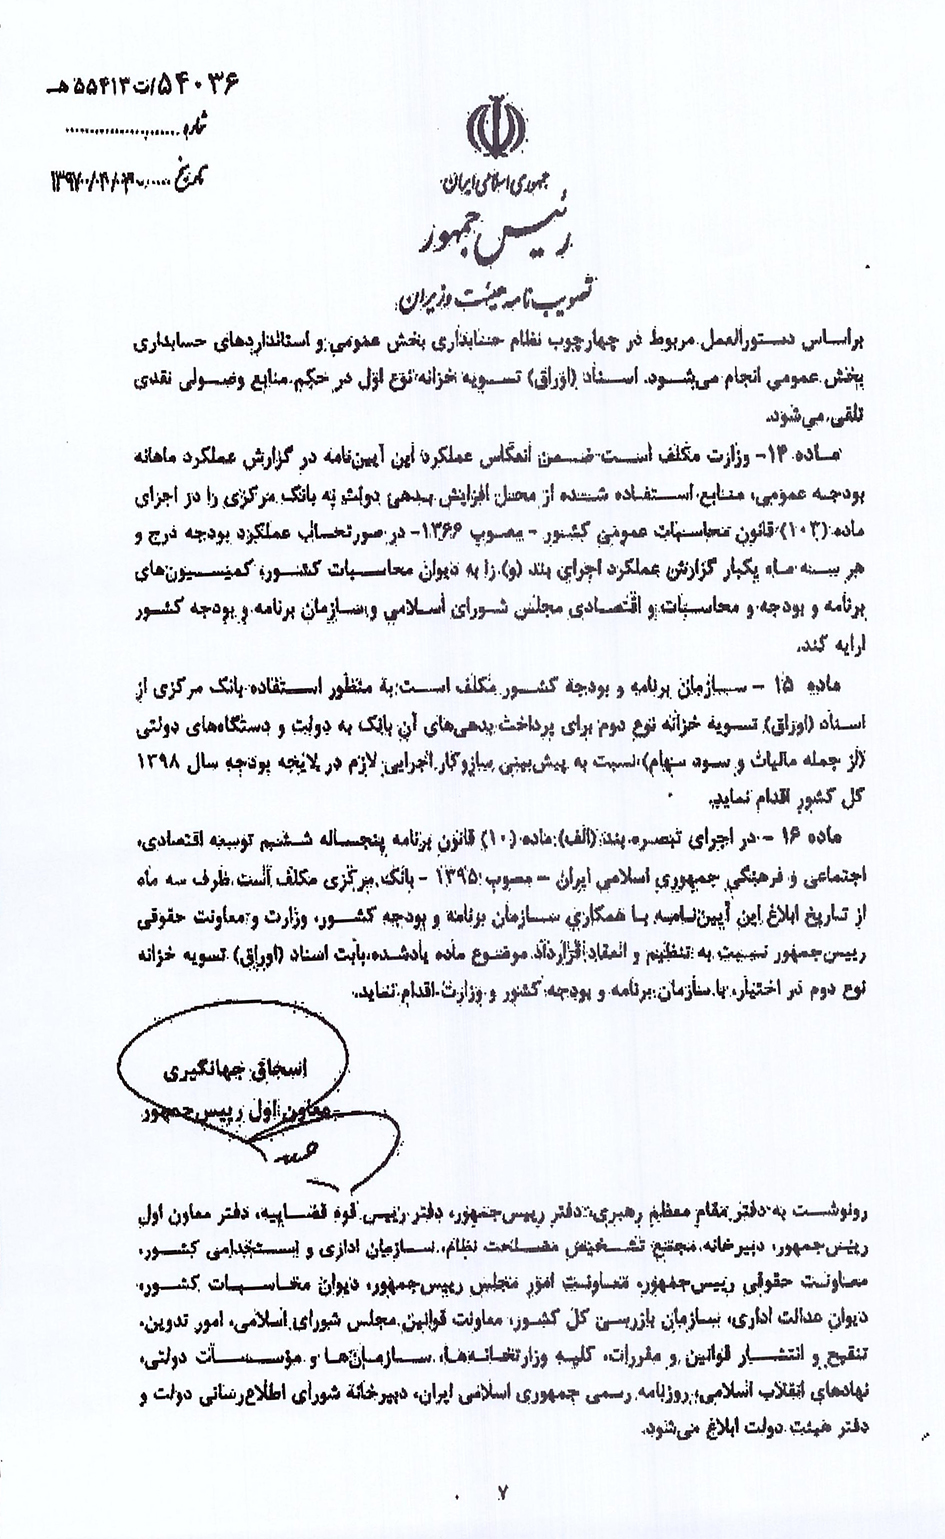 ۵۴۰۳۶/ت۵۵۴۱۳هـ
شماره
تاریخ ۱۳۹۷/۰۴/۰۳
جمهوری اسلامی ایران
رئیس جمهور
تصویب نامه هیئت وزیران
براساس دستورالعمل مربوط در چهارچوب نظام حسابداری بخش عمومی و استانداردهای حسابداری
بخش عمومی انجام می‌شود. اسناد (اوراق) تسویه خزانه نوع اول در حکم منابع وصولی نقدی
تلقی می‌شود.
ماده ۱۴- وزارت مکلف است ضمن انعکاس عملکرد این آیین‌نامه در گزارش عملکرد ماهانه
بودجه عمومی، منابع استفاده شده از محل افزایش بدهی دولت به بانک مرکزی را در اجرای
ماده (۱۰۳) قانون محاسبات عمومی کشور - مصوب ۱۳۶۶- در صورتحساب عملکرد بودجه درج و
هر سه ماه یکبار گزارش عملکرد اجرای بند (و) را به دیوان محاسبات کشور، کمیسیون‌های
برنامه و بودجه و محاسبات و اقتصادی مجلس شورای اسلامی و سازمان برنامه و بودجه کشور
ارایه کند.
ماده ۱۵ - سازمان برنامه و بودجه کشور مکلف است به منظور استفاده بانک مرکزی از
اسناد (اوراق) تسویه خزانه نوع دوم برای پرداخت بدهی‌های آن بانک به دولت و دستگاه‌های دولتی
(از جمله مالیات و سود سهام) نسبت به پیش‌بینی سازوکار اجرایی لازم در لایحه بودجه سال ۱۳۹۸
کل کشور اقدام نماید.
ماده ۱۶ - در اجرای تبصره بند (الف) ماده (۱۰) قانون برنامه پنجساله ششم توسعه اقتصادی،
اجتماعی و فرهنگی جمهوری اسلامی ایران - مصوب ۱۳۹۵ - بانک مرکزی مکلف است ظرف سه ماه
از تاریخ ابلاغ این آیین‌نامه با همکاری سازمان برنامه و بودجه کشور، وزارت و معاونت حقوقی
رییس‌جمهور نسبت به تنظیم و انعقاد قرارداد موضوع ماده یادشده بابت اسناد (اوراق) تسویه خزانه
نوع دوم در اختیار، با سازمان برنامه و بودجه کشور و وزارت اقدام نماید.
اسحاق جهانگیری
معاون اول رییس‌جمهور
رونوشت به دفتر مقام معظم رهبری، دفتر رییس‌جمهور، دفتر رییس قوه قضاییه، دفتر معاون اول
رییس‌جمهور، دبیرخانه مجمع تشخیص مصلحت نظام، سازمان اداری و استخدامی کشور،
معاونت حقوقی رییس‌جمهور، معاونت امور مجلس رییس‌جمهور، دیوان محاسبات کشور،
دیوان عدالت اداری، سازمان بازرسی کل کشور، معاونت قوانین مجلس شورای اسلامی، امور تدوین،
تنقیح و انتشار قوانین و مقررات، کلیه وزارتخانه‌ها، سازمان‌ها و مؤسسات دولتی،
نهادهای انقلاب اسلامی، روزنامه رسمی جمهوری اسلامی ایران، دبیرخانه شورای اطلاع‌رسانی دولت و
دفتر هیئت دولت ابلاغ می‌شود.
۷